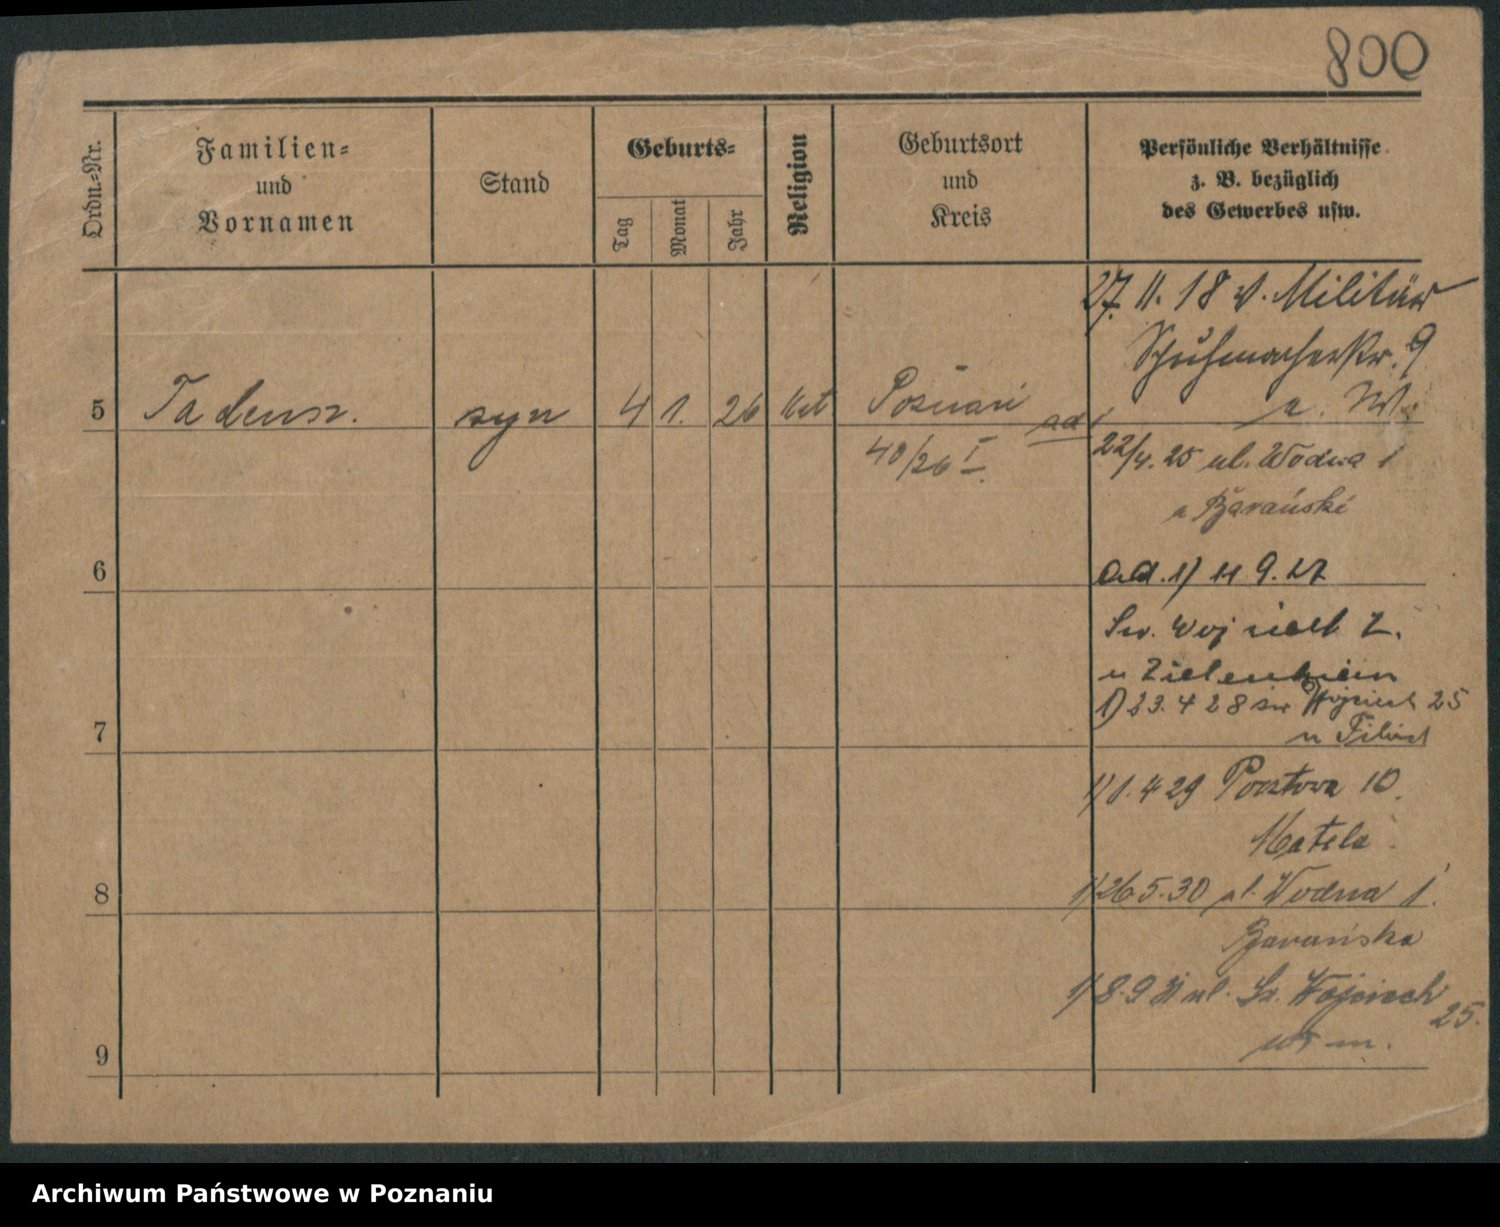 800
Ordn.-Nr.
Familien-
und
Vornamen
Stand
Geburts-
Tag
Monat
Jahr
Religion
Geburtsort
und
Kreis
Persönliche Verhältnisse
z. B. bezüglich
des Gewerbes usw.
27. 11. 18 v. Militär
Schuhmacherstr. 9
5 Tadeusz. syn 4 1. 26 kat Poznań
40/26 I
ad 1
22/4. 25 ul. Wodna 1
u Barański
6
ad. 1) 11 9. 27
Św. Wojciech 2.
u Zielenkiem
1) 23. 4 28 św Wojciech 25
7
1) 1. 4 29 Pocztowa 10.
Matela
8
1) 26 5. 30 ul. Wodna 1.
Barańska
1) 8. 9 31 ul. Św. Wojciech 25.
9
Archiwum Państwowe w Poznaniu